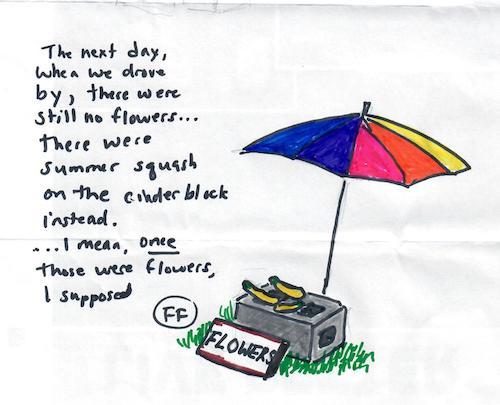 The next day,
when we drove
by, there were
still no flowers...
there were
summer squash
on the cinder block
instead.
...I mean, once
those were flowers,
I supposed
FF
FLOWERS